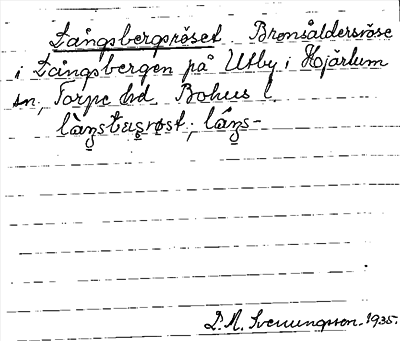 Långsbergsröset. Bronsåldersröse
i Långsbergen på Utby i Hjärtum
sn, Torpe hd Bohus l.
lån̥stas̥røst; lån̥s-
D. A. Svenungsson. 1935.